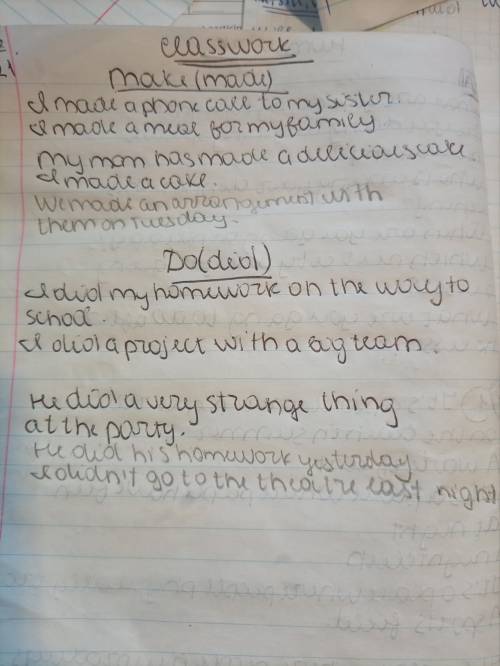 Classwork
Make (made)
I made a phone call to my sister
I made a meal for my family
My mom has made a delicious cake
I made a cake.
We made an arrangement with
them on Tuesday.
Do (did)
I did my homework on the way to
school.
I did a project with a big team.
He did a very strange thing
at the party.
He did his homework yesterday
I didn't go to the theatre last night